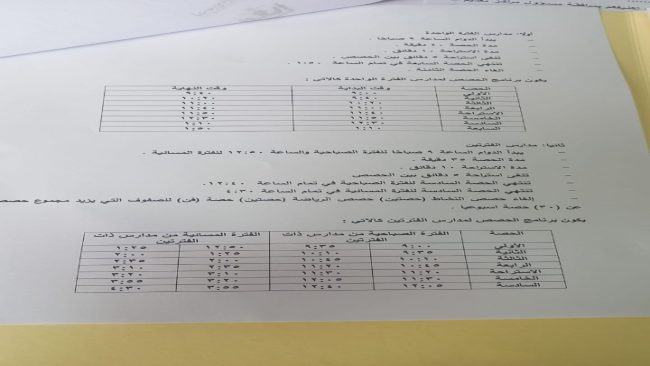 أولا: مدارس الفترة الواحدة
– يبدأ الدوام الساعة ٩ صباحا .
– مدة الحصة ٤٠ دقيقة .
– مدة الاستراحة ١٠ دقائق .
– تلغى استراحة ٥ دقائق بين الحصص .
– تنتهي الحصة السابعة في تمام الساعة ١:٥٠ .
– الغاء الحصة الثامنة .
يكون برنامج الحصص لمدارس الفترة الواحدة كالآتي :
الحصة وقت البداية وقت النهاية
الأولى ٩:٠٠ ٩:٤٠
الثانية ٩:٤٠ ١٠:٢٠
الثالثة ١٠:٢٠ ١١:٠٠
الرابعة ١١:٠٠ ١١:٤٠
الاستراحة ١١:٤٠
الخامسة ١٢:٣٠
السادسة ١٢:٣٠ ١:١٠
السابعة ١:١٠ ١:٥٠
ثانيا: مدارس الفترتين
– يبدأ الدوام الساعة ٩ صباحا للفترة الصباحية والساعة ١٢:٥٠ للفترة المسائية .
– مدة الحصة ٣٥ دقيقة .
– مدة الاستراحة ١٠ دقائق .
– تلغى استراحة ٥ دقائق بين الحصص
– تنتهي الحصة السادسة للفترة الصباحية في تمام الساعة ١٢:٤٠.
– تنتهي الحصة السادسة للفترة المسائية في تمام الساعة ٤:٣٠
– إلغاء حصص النشاط (حصتين) حصص الرياضة (حصتين) حصة (فن) للصفوف التي يزيد مجموع حصص
عن (٣٠) حصة اسبوعيا .
يكون برنامج الحصص لمدارس الفترتين كالآتي :
الحصة الفترة الصباحية من مدارس ذات الفترتين الفترة المسائية من مدارس ذات الفترتين
الأولى ٩:٠٠ ٩:٣٥ ١٢:٥٠ ١:٢٥
الثانية ٩:٣٥ ١٠:١٠ ١:٢٥ ٢:٠٠
الثالثة ١٠:١٠ ١٠:٤٥ ٢:٠٠ ٢:٣٥
الرابعة ١٠:٤٥ ١١:٢٠ ٢:٣٥ ٣:١٠
الاستراحة ١١:٢٠ ١١:٣٠ ٣:١٠ ٣:٢٠
الخامسة ١١:٣٠ ١٢:٠٥ ٣:٢٠ ٣:٥٥
السادسة ١٢:٠٥ ١٢:٤٠ ٣:٥٥ ٤:٣٠